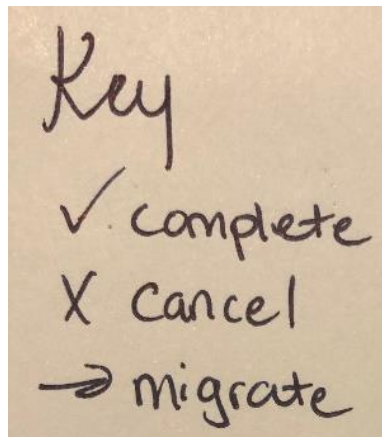 Key
✓ complete
X cancel
→ migrate